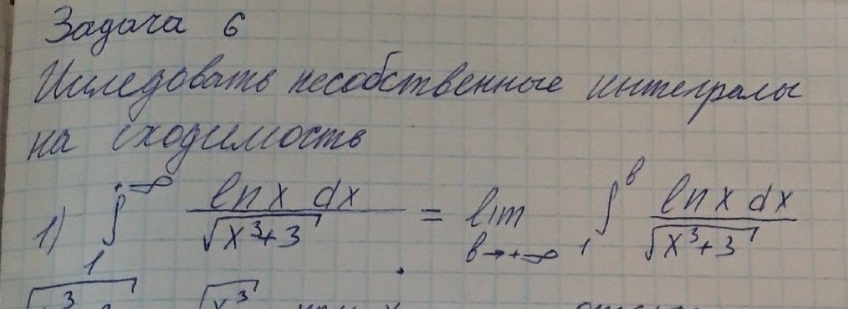 Задача 6
Исследовать несобственные интегралы
на сходимость
1) ∫₁^∞ ln x dx / √(x³+3) = lim_{b→+∞} ∫₁^b ln x dx / √(x³+3)